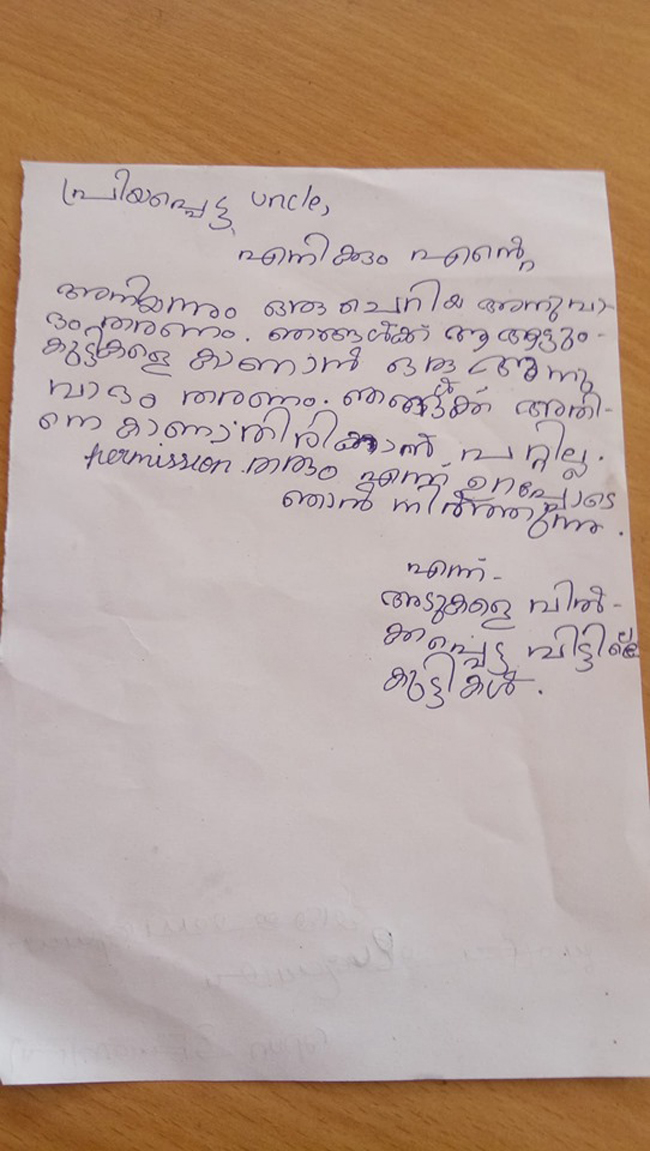 പ്രിയപ്പെട്ട uncle,
എനിക്കും എന്റെ
അനിയനും ഒരു ചെറിയ അനുവാ-
ദം തരണം. ഞങ്ങൾക്ക് ആ ആട്ടും-
കുട്ടികളെ കാണാൻ ഒരു അനു
വാദം തരണം. ഞങ്ങൾക്ക് അതി-
നെ കാണാതിരിക്കാൻ പറ്റില്ല.
permission തരും എന്ന് ഉറപ്പോടെ
ഞാൻ നിർത്തുന്നു.
എന്ന്-
അടുകളെ വിൽ-
ക്കപ്പെട്ട വിട്ടിലെ
കുട്ടികൾ.